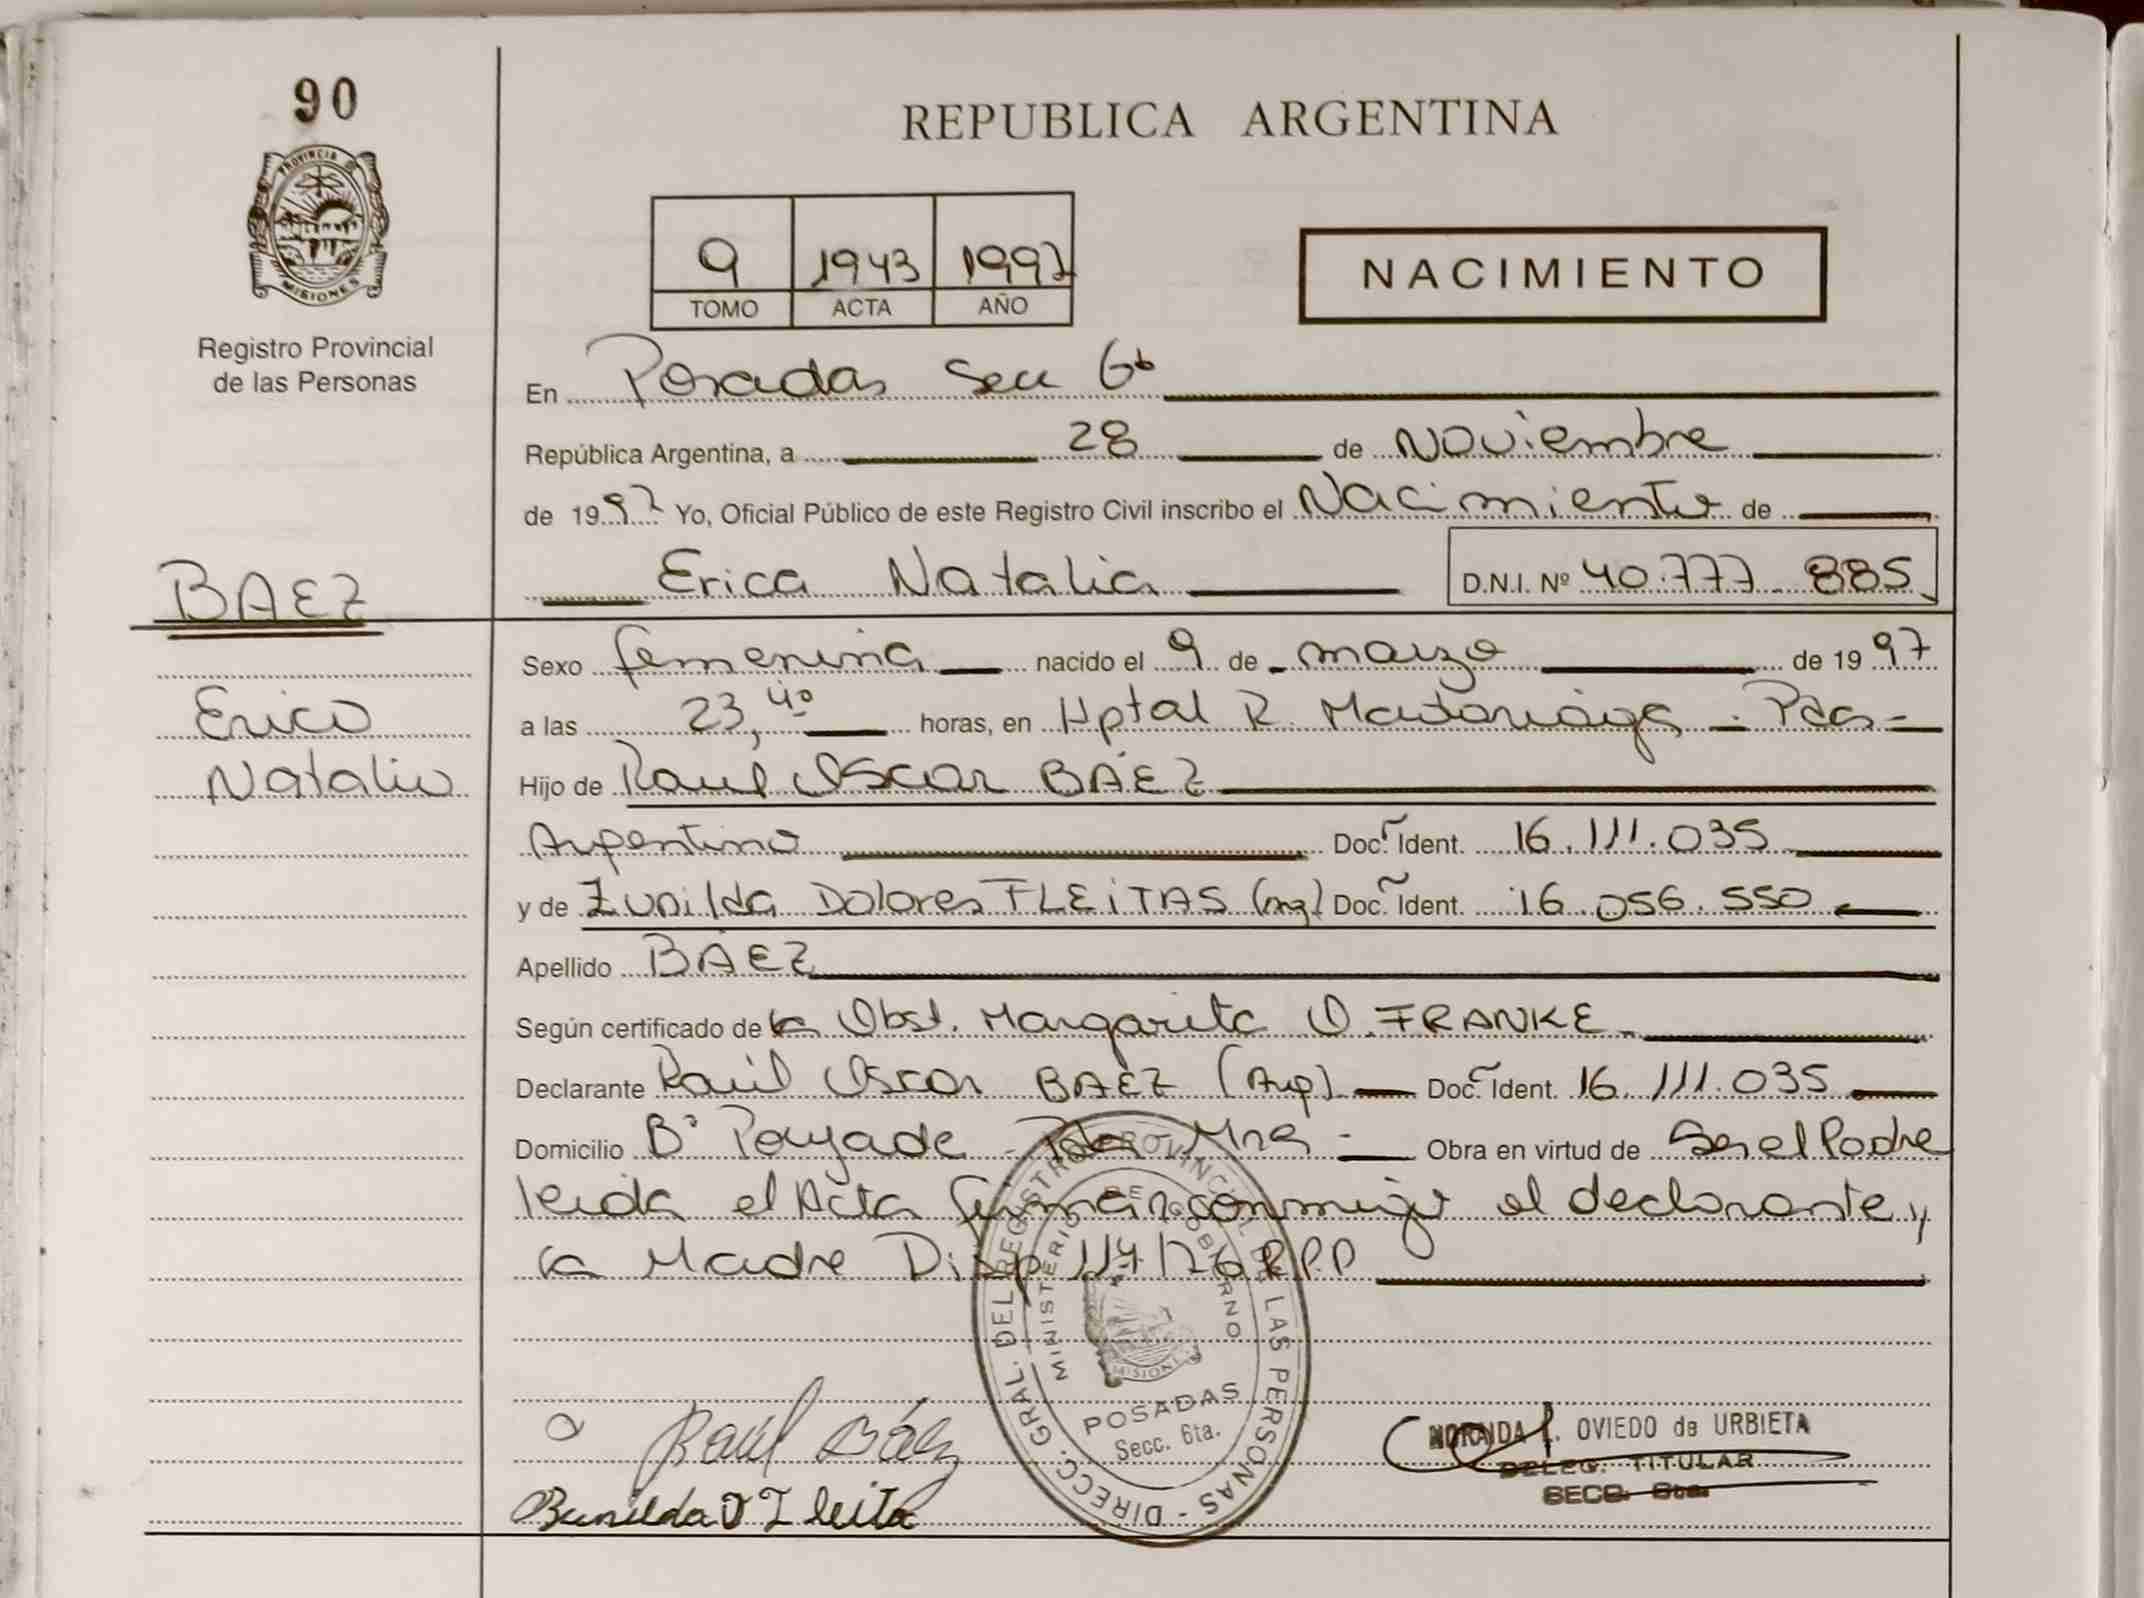 90
PROVINCIA DE
MISIONES
Registro Provincial
de las Personas
REPUBLICA ARGENTINA
9 1943 1997
TOMO ACTA AÑO
NACIMIENTO
En Posadas Secc 6ta
República Argentina, a 28 de Noviembre
de 1997 Yo, Oficial Público de este Registro Civil inscribo el Nacimiento de
Erica Natalia D.N.I. Nº 40.777.885
BAEZ
Erica
Natalia
Sexo femenina nacido el 9 de marzo de 1997
a las 23,40 horas, en Hptal R. Madariaga - Pdas -
Hijo de Raul Oscar BAEZ
Argentino Doc. Ident. 16.111.035
y de Zunilda Dolores FLEITAS (arg) Doc. Ident. 16.056.550
Apellido BAEZ
Según certificado de la Obst. Margarita O. FRANKE
Declarante Raúl Oscar BAEZ (Arg) Doc. Ident. 16.111.035
Domicilio Bº Poujade - Pdas Mnes - Obra en virtud de Ser el Padre
leida el Acta firman conmigo el declarante y
la Madre Disp 117/76 R.P.P
DIRECC. GRAL. DEL REGISTRO PROVINCIAL DE LAS PERSONAS -
MINISTERIO DE GOBIERNO
MISIONES
POSADAS
Secc. 6ta.
Raúl Báez
Zunilda D Fleita
NORAIDA L. OVIEDO de URBIETA
DELEG. TITULAR
SECC. 6ta.